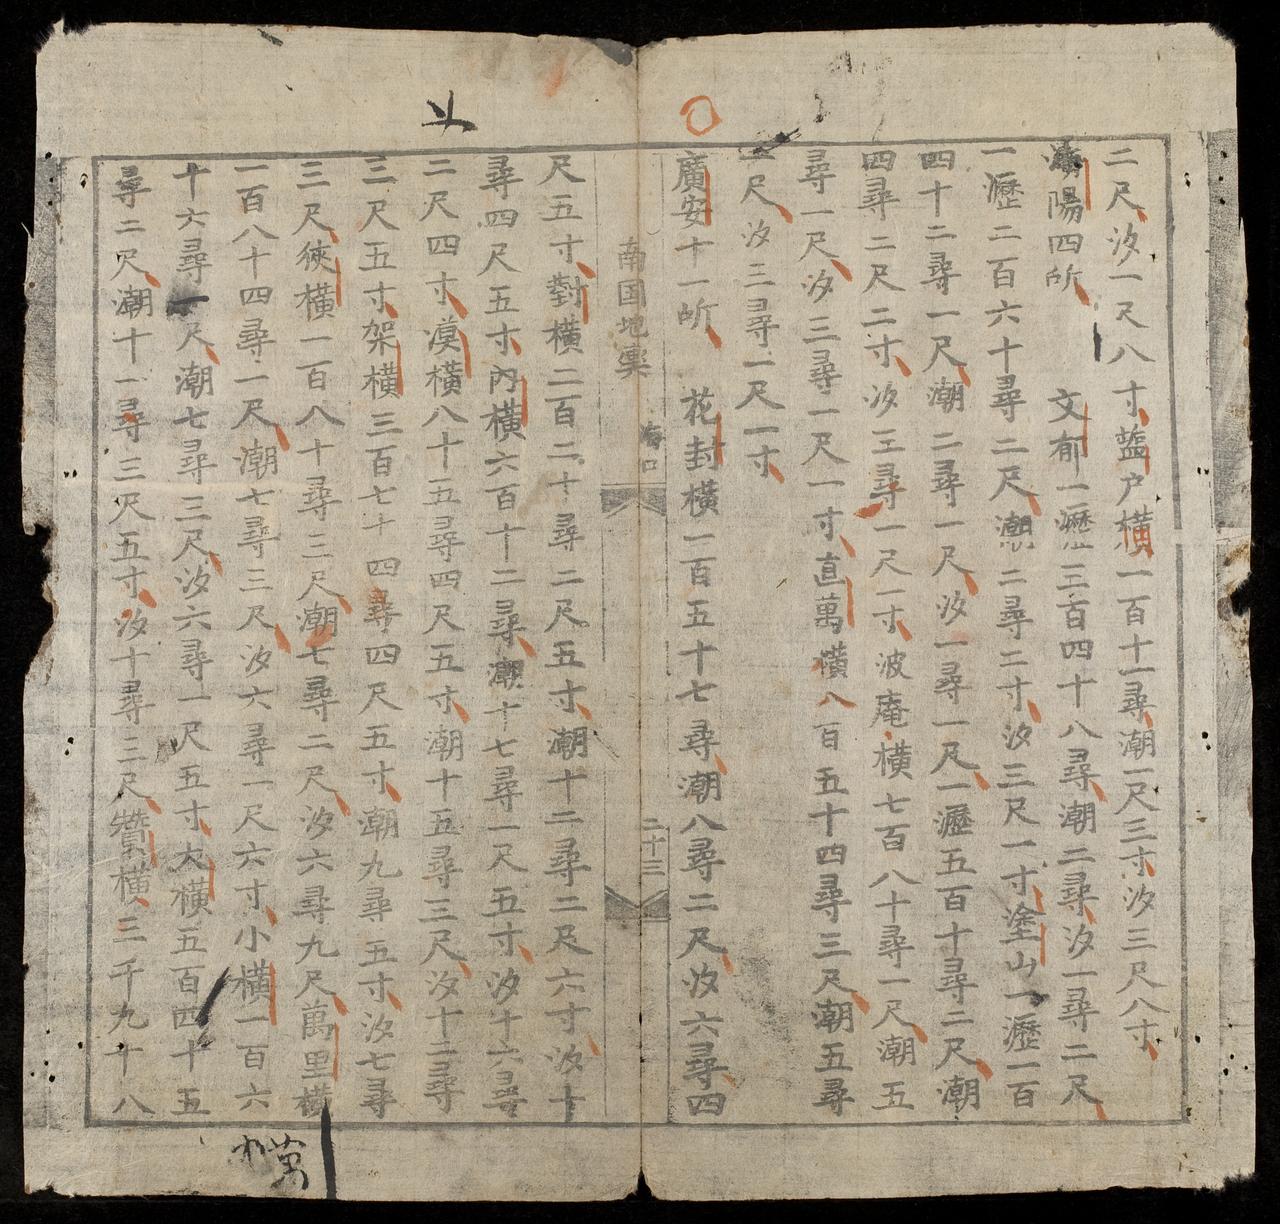 二尺汐一尺八寸藍户橫一百十一尋潮一尺三寸汐三尺八寸
陽四所 文郁一瀝三百四十八尋潮二尋汐一尋二尺
一瀝二百六十尋二尺潮二尋二寸汐三尺一寸塗山一瀝一百
四十二尋一尺潮二尋一尺汐一尋一尺一瀝五百十尋二尺潮
四尋二尺二寸汐三尋一尺一寸波庵橫七百八十尋一尺潮五
尋一尺汐三尋一尺一寸直萬橫八百五十四尋三尺潮五尋
尺汐三尋二尺一寸
廣安十一所 花封橫一百五十七尋潮八尋二尺汐六尋四
南国地輿 海口 二十三
尺五寸對橫二百二十尋二尺五寸潮十二尋二尺六寸汐十
尋四尺五寸內橫六百十二尋潮十七尋一尺五寸汐十六尋
二尺四寸漠橫八十五尋四尺五寸潮十五尋三尺汐十二尋
三尺五寸架橫三百七十四尋四尺五寸潮九尋五寸汐七尋
三尺狹橫一百八十尋三尺潮七尋二尺汐六尋九尺萬里橫
一百八十四尋一尺潮七尋三尺汐六尋一尺六寸小橫一百六
十六尋一尺潮七尋三尺汐六尋一尺五寸大橫五百四十五
尋二尺潮十一尋三尺五寸汐十尋三尺贊橫三千九十八
萬